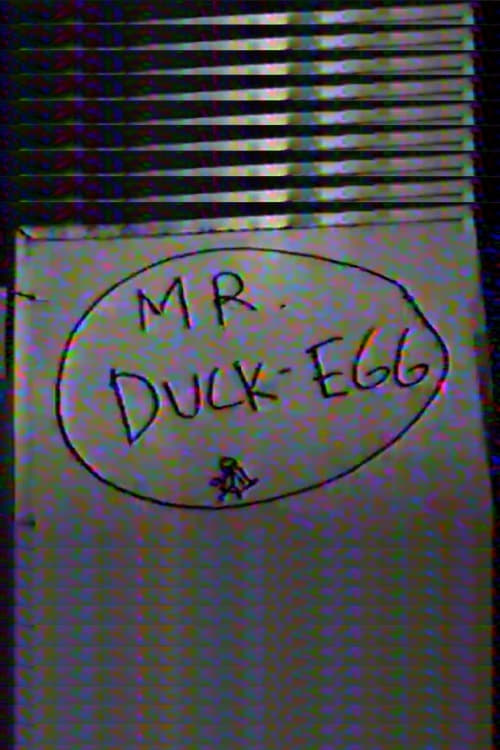 MR.
DUCK-EGG